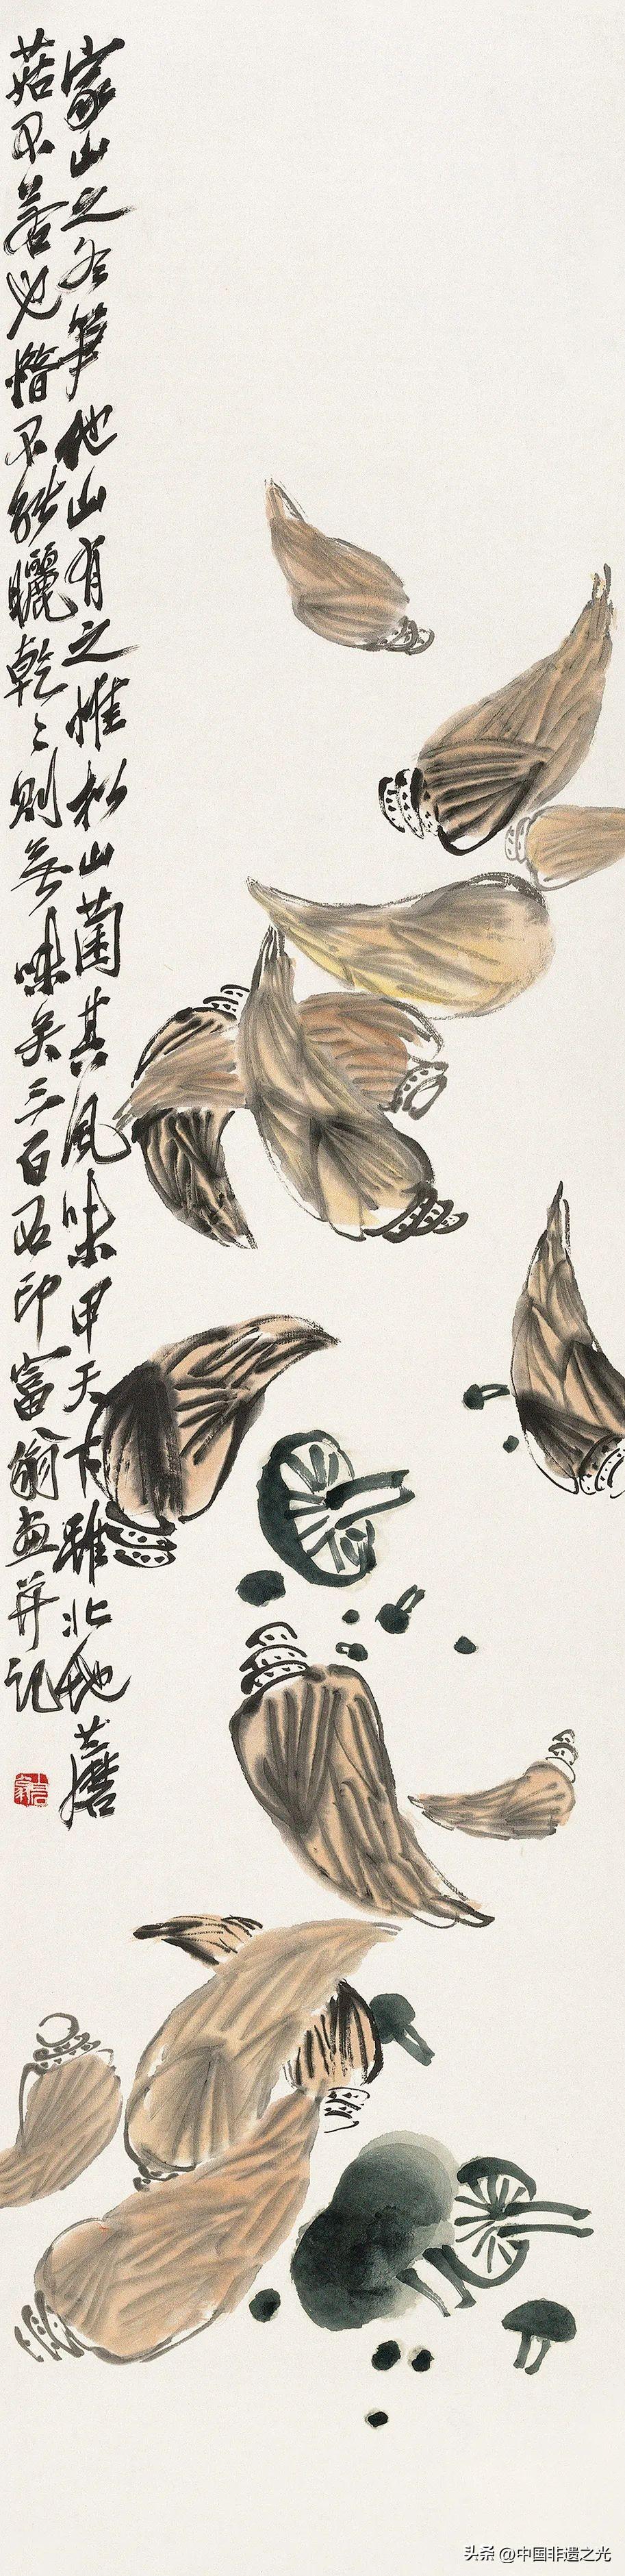 家山之冬笋他山有之惟松山菌其风味甲天下虽北地蘑
菇不若也惜不能曬乾々則無味矣三百石印富翁画并记
头条 @中国非遗之光